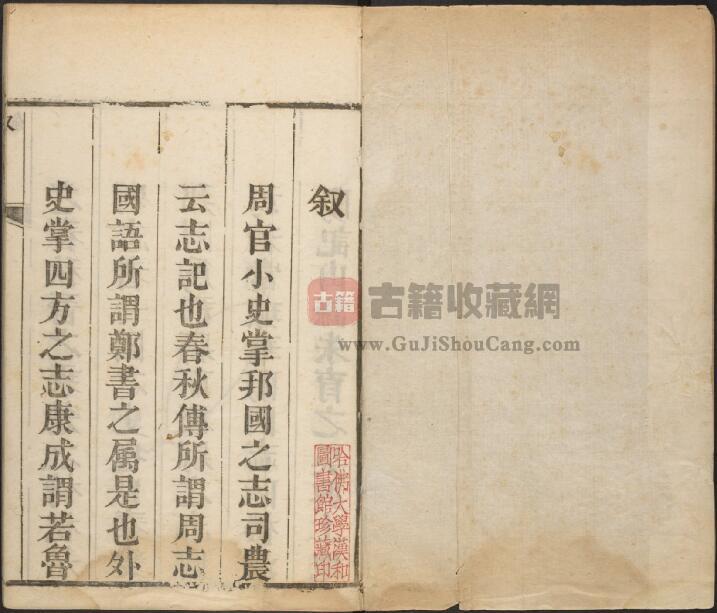 叙
周官小史掌邦國之志司農
云志記也春秋傳所謂周志
國語所謂鄭書之属是也外
史掌四方之志康成謂若魯
哈佛大學漢和
圖書館珍藏印
古籍 古籍收藏網
www.GuJiShouCang.com